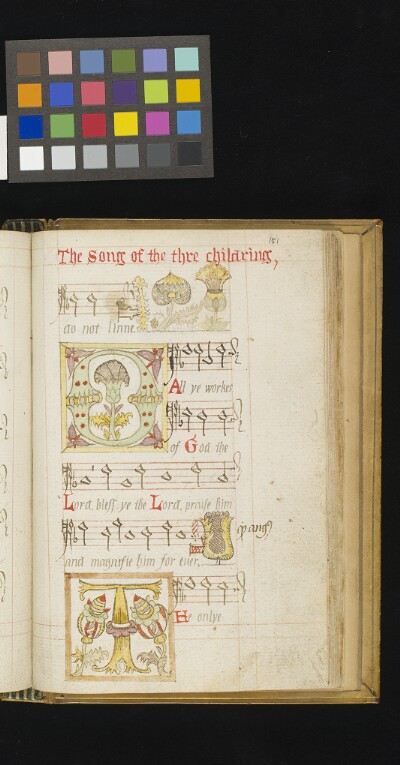 151
The Song of the thre childring,
do not sinne.
O
All ye workes
of God the
Lord, bless ye the Lord, praise him
and magnifie him for ever.
T
He onlye